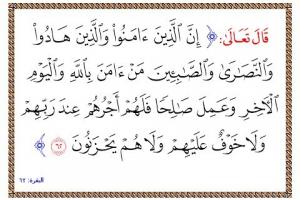 قَالَ تَعَالَىٰ: ﴿ إِنَّ ٱلَّذِينَ ءَامَنُوا۟ وَٱلَّذِينَ هَادُوا۟
وَٱلنَّصَٰرَىٰ وَٱلصَّٰبِـِٔينَ مَنْ ءَامَنَ بِٱللَّهِ وَٱلْيَوْمِ
ٱلْءَاخِرِ وَعَمِلَ صَٰلِحًا فَلَهُمْ أَجْرُهُمْ عِندَ رَبِّهِمْ
وَلَا خَوْفٌ عَلَيْهِمْ وَلَا هُمْ يَحْزَنُونَ ٦٢ ﴾
البقرة: ٦٢